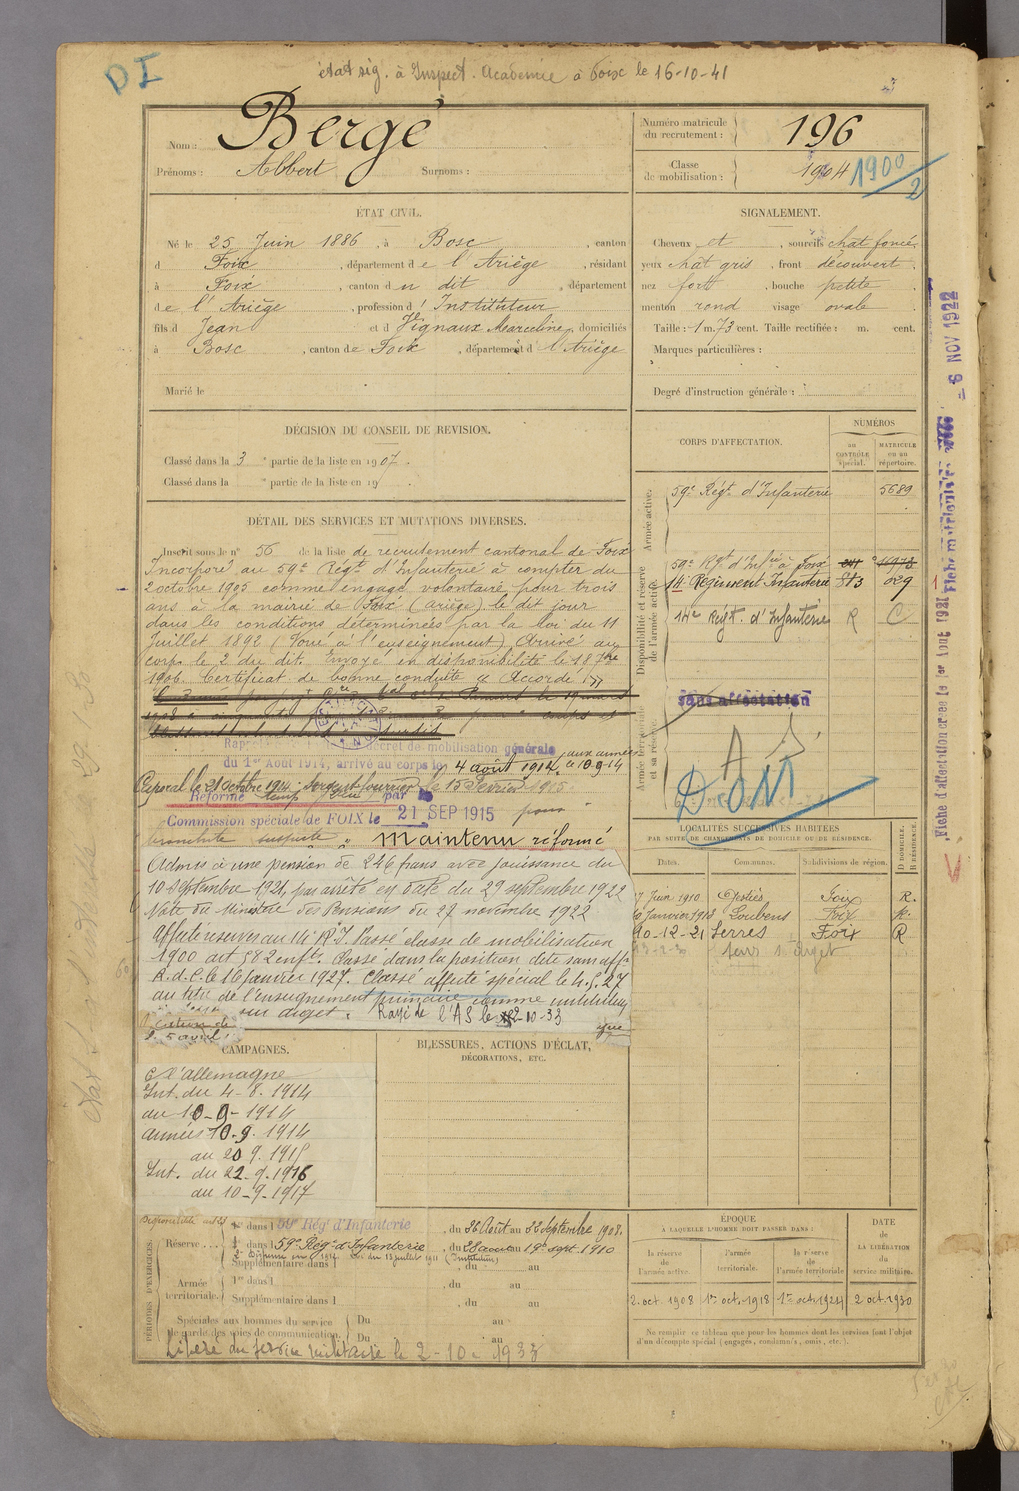 DI
état sig. à Inspect. Academie à Foix le 16-10-41
Nom : Bergé
Prénoms : Albert Surnoms :
Numéro matricule du recrutement : 196
Classe de mobilisation : 1904 1900/2
ÉTAT CIVIL.
Né le 25 Juin 1886, à Bosc, canton
d Foix, département de l'Ariège, résidant
à Foix, canton du dit, département
de l'Ariège, profession d'Instituteur
fils d Jean et d Vignaux Marceline, domiciliés
à Bosc, canton de Foix, département d l'Ariège
Marié le
SIGNALEMENT.
Cheveux et, sourcils chat foncé
yeux chat gris, front découvert
nez fort, bouche petite
menton rond visage ovale
Taille : 1 m. 73 cent. Taille rectifiée : m. cent.
Marques particulières :
Degré d'instruction générale :
DÉCISION DU CONSEIL DE REVISION.
Classé dans la 3e partie de la liste en 1907.
Classé dans la e partie de la liste en 19
DÉTAIL DES SERVICES ET MUTATIONS DIVERSES.
Inscrit sous le n° 56 de la liste de recrutement cantonal de Foix
Incorporé au 59e Régt d'Infanterie à compter du
2 octobre 1905 comme engagé volontaire pour trois
ans à la mairie de Foix (Ariège) le dit jour
dans les conditions déterminées par la loi du 11
Juillet 1892 (Voué à l'enseignement) Arrivé au
corps le 2 du dit. Envoyé en disponibilité le 18 7bre
1906. Certificat de bonne conduite "Accordé"
Rappelé décret de mobilisation générale
du 1er Août 1914, arrivé au corps le 4 août 1914. aux armées le 10-9-14
Caporal le 21 Octobre 1914. Sergent fourrier le 15 Février 1915.
Réformé temp par la
Commission spéciale de FOIX le 21 SEP 1915 pour
bronchite suspecte Maintenu réformé
Admis à une pension de 246 francs avec jouissance du
10 Septembre 1921, par arrêté en date du 29 septembre 1922
Note du Ministère des Pensions du 27 novembre 1922
Affecté réserves au 14e R.I. Passé classe de mobilisation
1900 art 58 2e nfts. Classé dans la position dite sans aff.
R.d.C. le 16 janvier 1927. Classé affecté spécial le 4.5.27
au titre de l'enseignement primaire comme instituteur
Rayé de l'AS le 2-10-33
CORPS D'AFFECTATION.
NUMÉROS
au CONTRÔLE spécial.
MATRICULE ou au répertoire.
Armée active.
59e Régt d'Infanterie 5689
Disponibilité et réserve de l'armée active.
59e Rgt d'Infie à Foix
14 Régiment Infanterie 873 029
14e Régt. d'Infanterie R C
Armée territoriale et sa réserve.
sans affectation
DOM
LOCALITÉS SUCCESSIVES HABITÉES
PAR SUITE DE CHANGEMENTS DE DOMICILE OU DE RÉSIDENCE.
Dates. Communes. Subdivisions de région. D DOMICILE. R RÉSIDENCE.
7 Juin 1910 Foix R.
Janvier 1913 Loubens Foix R.
10-12-21 Serres Foix R
CAMPAGNES.
C l'allemagne
Int. du 4-8. 1914
au 10-9-1914
Armées 10.9.1914
au 20 9. 1915
Int. du 22-9-1916
au 10-9-1917
BLESSURES, ACTIONS D'ÉCLAT,
DÉCORATIONS, ETC.
PÉRIODES D'EXERCICES.
Réserve
1re dans l 59e Régt d'Infanterie, du 26 Août au 22 Septembre 1908.
2e dans l 59e Régt d'Infanterie, du 28 août au 19 sept. 1910
Supplémentaire dans l, du au
Armée territoriale.
1re dans l, du au
Supplémentaire dans l, du au
Spéciales aux hommes du service de garde des voies de communication.
Du au
Du au
Libéré du service militaire le 2-10-1933
ÉPOQUE
À LAQUELLE L'HOMME DOIT PASSER DANS :
la réserve de l'armée active. l'armée territoriale. la réserve de l'armée territoriale
DATE DE LA LIBÉRATION du service militaire.
2. oct. 1908 1er oct. 1918 1er oct. 1924 2 oct. 1930
Ne remplir ce tableau que pour les hommes dont les services font l'objet d'un décompte spécial (engagés, condamnés, omis, etc.).
Fiche d'affectation créée le 1er Août 1921
Fiche matriculaire
- 6 NOV 1922